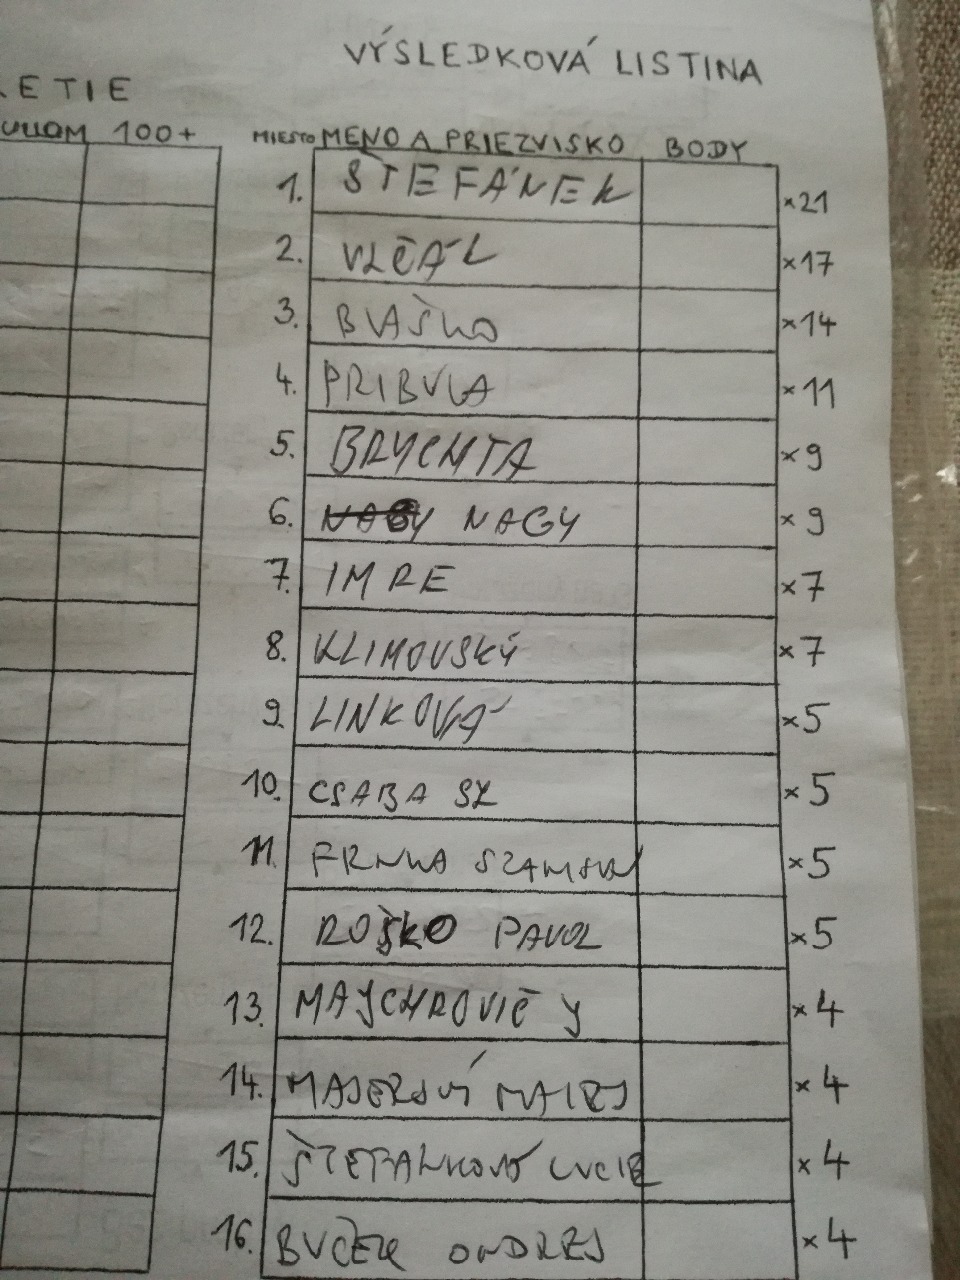 VÝSLEDKOVÁ LISTINA
LETIE
100+
MIESTO MENO A PRIEZVISKO BODY
1. ŠTEFÁNEK ×21
2. VLČÁK ×17
3. BLAŠKO ×14
4. PRIBULA ×11
5. BRYCHTA ×9
6. NAGY NAGY ×9
7. IMRE ×7
8. KLIMOVSKÝ ×7
9. LINKOVÁ ×5
10. CSABA SZ ×5
11. FRNKA ×5
12. ROŠKO PAVOL ×5
13. MAJCHROVIČ J ×4
14. MATEJ ×4
15. LUCIE ×4
16. BUČEK ONDREJ ×4